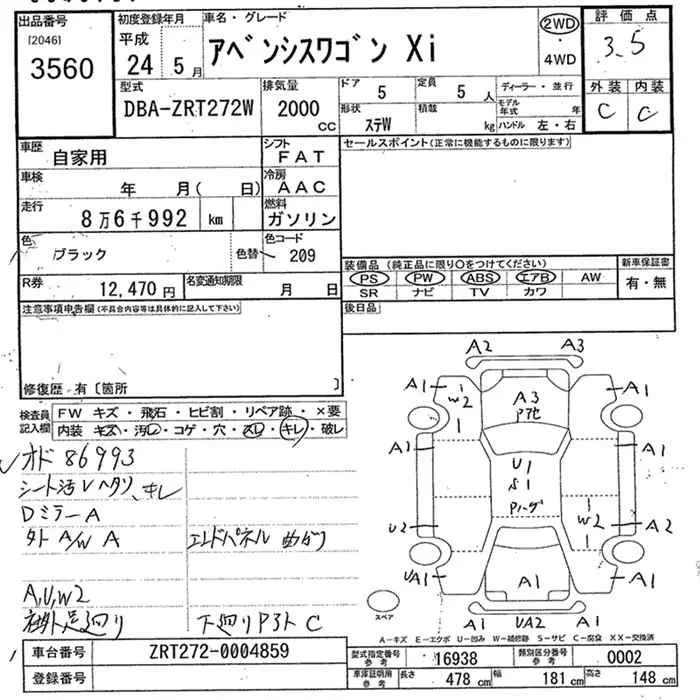 出品番号
[2046]
3560
初度登録年月
平成
24 5月
車名・グレード
アベンシスワゴン Xi
2WD
・
4WD
評価点
3.5
外装 内装
C C
型式
DBA-ZRT272W
排気量
2000
CC
ドア
5
定員
5人
形状
ステW
積載
kg
ディーラー・並行
モデル年式 年
ハンドル 左・右
車歴
自家用
シフト
FAT
車検
年 月( 日)
冷房
AAC
走行
8万6千992 km
燃料
ガソリン
色
ブラック
色替
色コード
209
R券
12,470円
名変通知期限
月 日
セールスポイント(正常に機能するものに限ります)
装備品 (純正品に限り○をつけてください)
新車保証書
PS PW ABS エアB AW
有・無
SR ナビ TV カワ
後日品
注意事項申告欄(不具合内容等は具体的に記入して下さい)
修復歴 有〔箇所 〕
検査員記入欄
FW キズ・飛石・ヒビ割・リペア跡・×要
内装 キズ・汚レ・コゲ・穴・スレ・キレ・破レ
オド 86993
シート汚レヘタリ、キレ
Dミラー A
外 A/W A
エンドパネル 曲がり
A,U,W2
下廻りサビト C
A2 A3
A1 W2 A3 A1
A1 U1 A1
S1
U2 W2 A2
UA1 A1 A1
UA2
スペア
A-キズ E-エクボ U-凹み W-補修跡 S-サビ C-腐食 XX-交換済
車台番号
ZRT272-0004859
登録番号
型式指定番号
参考
16938
類別区分番号
参考
0002
車庫証明用
参考
長さ
478 cm
幅
181 cm
高さ
148 cm